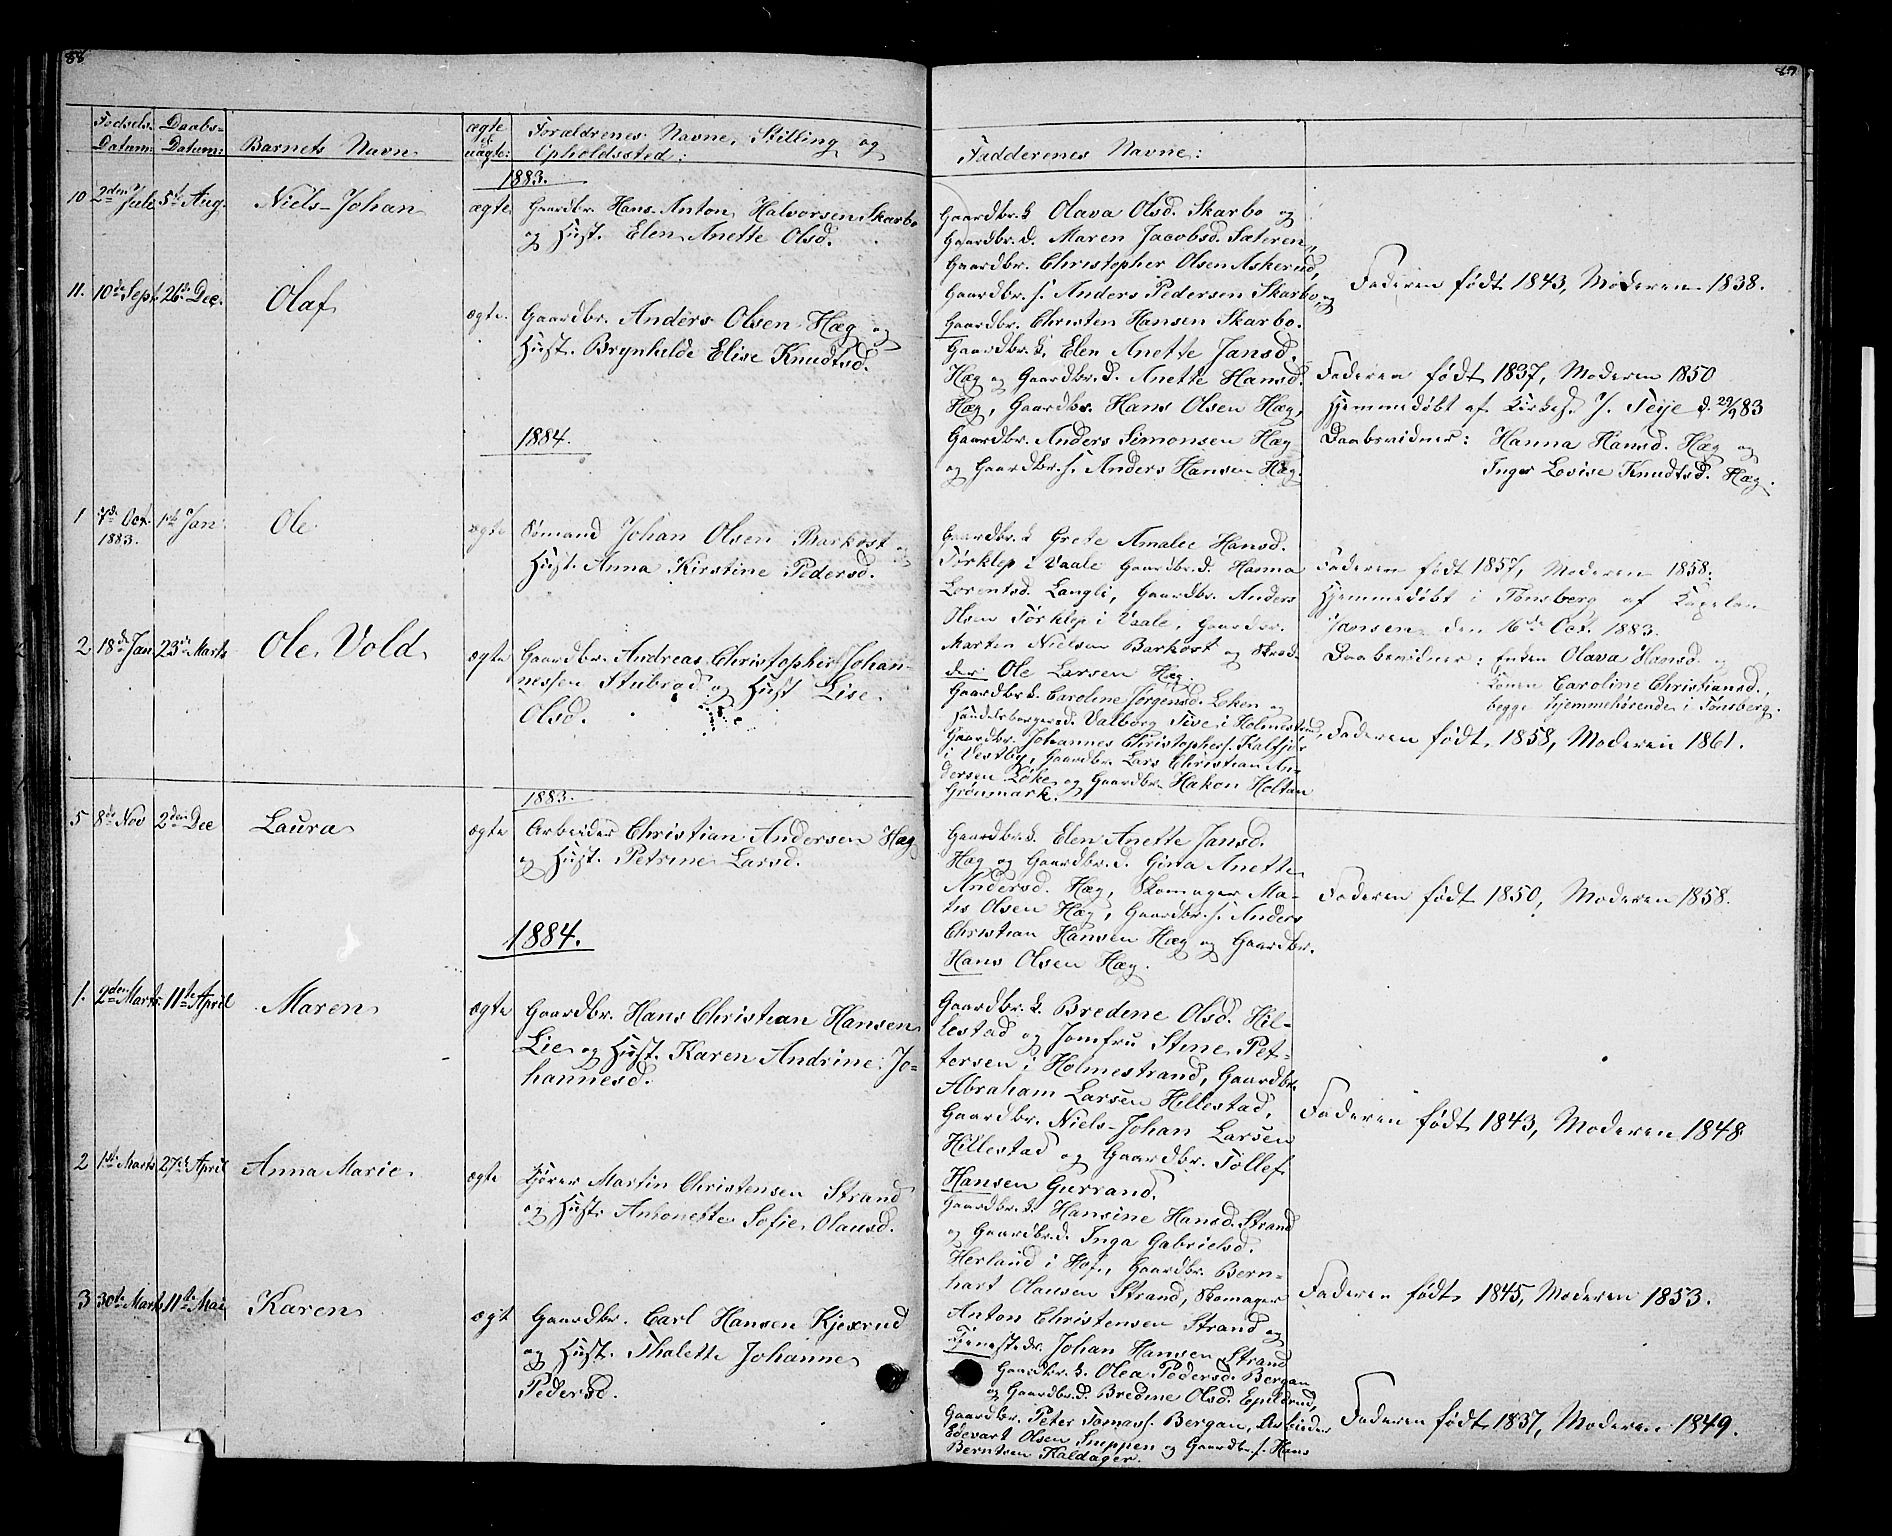 88
Fødsels- Daabs- Barnets Navn ægte el. uægte: Forældrenes Navne, Stilling og
Datum: Datum: Opholdssted:
1883.
10 2den Juli 5t Aug. Niels Johan ægte Gaardbr. Hans Anton Halvorsen Skarbo
og Hust. Elen Anette Olsd.
11. 10de Sept. 26de Dec. Olaf ægte. Gaardbr. Anders Olsen Hæg og
Hust. Brynhilde Elise Knudtsd.
1884.
1 7de Oct. 1883. 1ste Jan Ole ægte Sømand Johan Olsen Barkost og
Hust. Anna Kirstine Pedersd.
2 18de Jan 23de Marts Ole Vold ægte Gaardbr. Andreas Christopher Johan-
nessen Stubrød og Hust Lise
Olsd.
1883.
5 8de Nov 2den Dec Laura ægte Arbeider Christian Andersen Hæg
og Hust. Petrine Larsd.
1884.
1. 2den Marts 11te April Maren ægte Gaardbr. Hans Christian Hansen
Lie og Hust. Karen Andrine Jo-
hannesd.
2 1ste Marts 27de April Anna Marie ægte Martin Christensen Strand
og Hust. Antonette Sofie Olausd.
3 30te Marts 11te Mai Karen ægt Gaardbr. Carl Hansen Kjexrud
og Hust. Thalette Johanne
Pedersd.
89
Fadderenes Navne:
Gaardbr.k Olava Olsd. Skarbo og
Gaardbr.d. Maren Jacobsd. Sæteren,
Gaardbr. Christopher Olsen Askerud,
Gaardbr.s. Anders Pedersen Skarbo, og
Gaardbr. Christen Hansen Skarbo.
Faderen født 1843, Moderen 1838.
Gaardbr.k. Elen Anette Jansd.
Hæg og Gaardbr.d. Anette Hansd.
Hæg, Gaardbr. Hans Olsen Hæg,
Gaardbr. Anders Simonsen Hæg
og Gaardbr.s. Anders Hansen Hæg.
Faderen født 1837, Moderen 1850
Hjemmedøbt af Kirkes. J. Teije d. 29/9 83
Daabsvidner: Hanna Hansd. Hæg og
Inger Lovise Knudtsd. Hæg.
Gaardbr.k Grete Amalie Hansd.
Tørklep i Vaale Gaardbr.d. Hanna
Lorentsd. Langli, Gaardbr. Anders
Olsen Tørklep i Vaale, Gaardbr.
Martin Nielsen Barkost og Skræd-
der Ole Larsen Hæg.
Faderen født 1857, Moderen 1858.
Hjemmedøbt i Tønsberg af Kapelan
Jansen den 16de Oct. 1883.
Daabsvidner: Enken Olava Hansd. og
Konen Caroline Christiansd.,
begge hjemmehørende i Tønsberg.
Gaardbr.k. Caroline Jørgensd. Løken og
Handelsborgerd. Valborg Sive i Holmestrand,
Gaardbr. Johannes Christophers. Kalfjøs
i Vestby, Gaardbr. Lars Christian An-
dersen Løke og Gaardbr. Hakon Holtan
Grønmark.
Faderen født 1858, Moderen 1861.
Gaardbr.k. Elen Anette Jansd.
Hæg og Gaardbr.d. Gina Anette
Andersd. Hæg, Skomager Ma-
tis Olsen Hæg, Gaardbr.s. Anders
Christian Hansen Hæg og Gaardbr.
Hans Olsen Hæg.
Faderen født 1850, Moderen 1858.
Gaardbr.k. Bredine Olsd. Hil-
lestad og Jomfru Stine Pet-
tersen i Holmestrand, Gaardbr.
Abraham Larsen Hillestad,
Gaardbr. Niels Johan Larsen
Hillestad og Gaardbr. Tollef
Hansen Gurrand.
Faderen født 1843, Moderen 1848
Gaardbr.k. Hansine Hansd. Strand
og Gaardbr.d. Inga Gabrielsd.
Herland i Hof, Gaardbr. Bern-
hart Olausen Strand, Skomager
Anton Christensen Strand og
Tjenestedr. Johan Hansen Strand
Faderen født 1845, Moderen 1853.
Gaardbr.k. Olea Pedersd. Bergan
og Gaardbr.d. Bredine Olsd. Epilerud,
Gaardbr. Peter Tomass. Bergan, Arbeider
Edevart Olsen Snippen og Gaardbr.s. Hans
Berntsen Kaldager.
Faderen født 1837, Moderen 1849.